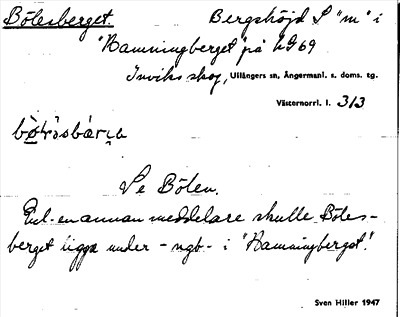 Bölesberget. Bergshöjd S "m" i
"Hamningberget" på LG 69
Inviks skog, Ullångers sn, Ångermanl. s. doms. tg.
Västernorrl. l. 313
Se Bölen.
Enl. en annan meddelare skulle Böles-
berget ligga under - ngt - i "Hamningberget".
Sven Hiller 1947